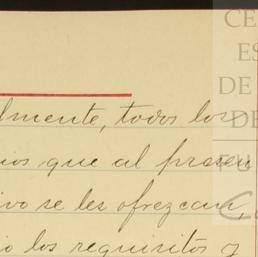 CE
ES
DE
DE
lmente, todos los
ios que al presen
FU
ivo se les ofrezcan,
io los requisitos y